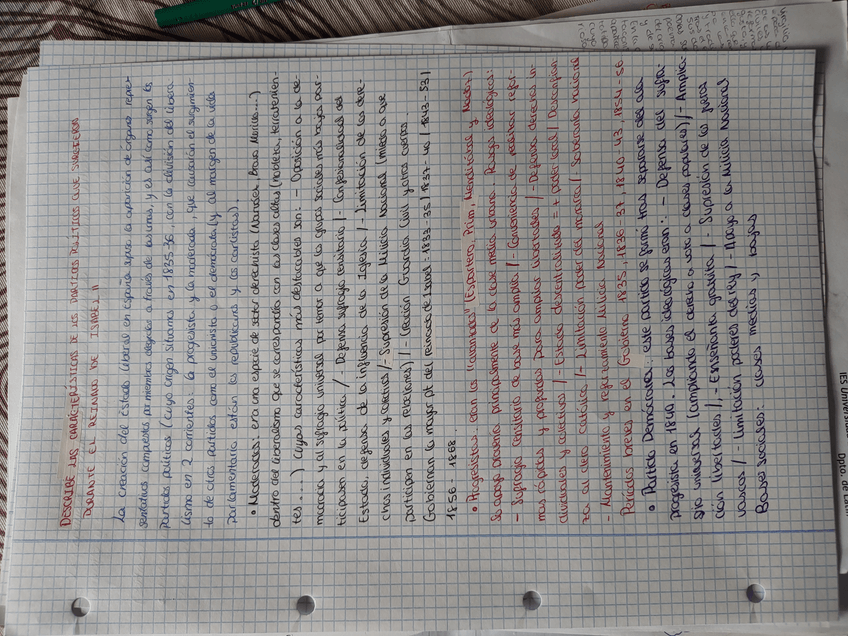 DESCRIBE LAS CARACTERÍSTICAS DE LOS PARTIDOS POLÍTICOS QUE SURGIERON
DURANTE EL REINADO DE ISABEL II
La creación del Estado liberal en España supuso la aparición de órganos repre-
sentativos compuestos por miembros elegidos a través de los mismos, y es así como surgen los
partidos políticos (cuyo origen situamos en 1835-36, con la división del libera-
lismo en 2 corrientes: la progresista y la moderada, que causarían el surgimien-
to de otros partidos como el unionista o el demócrata (y al margen de la vida
parlamentaria están los republicanos y los carlistas).
• Moderados: era una especie de sector derechista (Narváez, Bravo Murillo...)
dentro del liberalismo que se correspondía con las clases altas (nobleza, terratenien-
tes...) cuyas características más destacables son: - Oposición a la de-
mocracia y al sufragio universal por temor a que los grupos sociales más bajos par-
ticipasen en la política / - Defensa sufragio censitario / - Confesionalidad del
Estado, defensa de la influencia de la Iglesia / - Limitación de los dere-
chos individuales y colectivos / - Supresión de la Milicia Nacional (miedo a que
participen en las rebeliones) / - Creación Guardia Civil y otros cuerpos.
Gobiernan la mayor pt del reinado de Isabel: 1833-35 / 1837-40 / 1843-53 /
1856-1868.
• Progresistas: eran los "avanzados" (Espartero, Prim, Mendizábal y Madoz)
Su apoyo provenía principalmente de la clase media urbana. Rasgos ideológicos:
- Sufragio censitario de base más amplia / - Conveniencia de realizar refor-
mas rápidas y profundas para ampliar libertades / - Defensa derechos in-
dividuales y colectivos / - Estado descentralizado = + poder local / Desconfian-
za al clero católico / - Limitación poder del monarca / Soberanía nacional
- Mantenimiento y reforzamiento Milicia Nacional
Períodos breves en el Gobierno: 1835, 1836-37, 1840-43, 1854-56
• Partido Demócrata: este partido se formó tras separarse del ala
progresista en 1849. Las bases ideológicas eran: - Defensa del sufra-
gio universal (ampliando el derecho a voto a clases populares) / - Amplia-
ción libertades / - Enseñanza gratuita / Supresión de los fueros
vascos / - Limitación poderes del rey / - Apoyo a la Milicia Nacional
Bases sociales: clases medias y bajas
IES Universidad
Dpto de